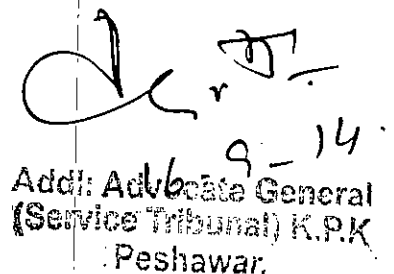 16-9-14
Addl: Advocate General
(Service Tribunal) K.P.K
Peshawar.